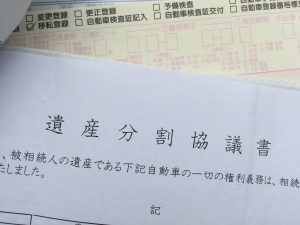 変更登録 □ 更正登録 □ 予備検査 □ 自動車登録番号
☑ 移転登録 □ 自動車検査証記入 □ 自動車検査証交付
遺産分割協議書
、被相続人の遺産である下記自動車の一切の権利義務は、相続
たしました。
記